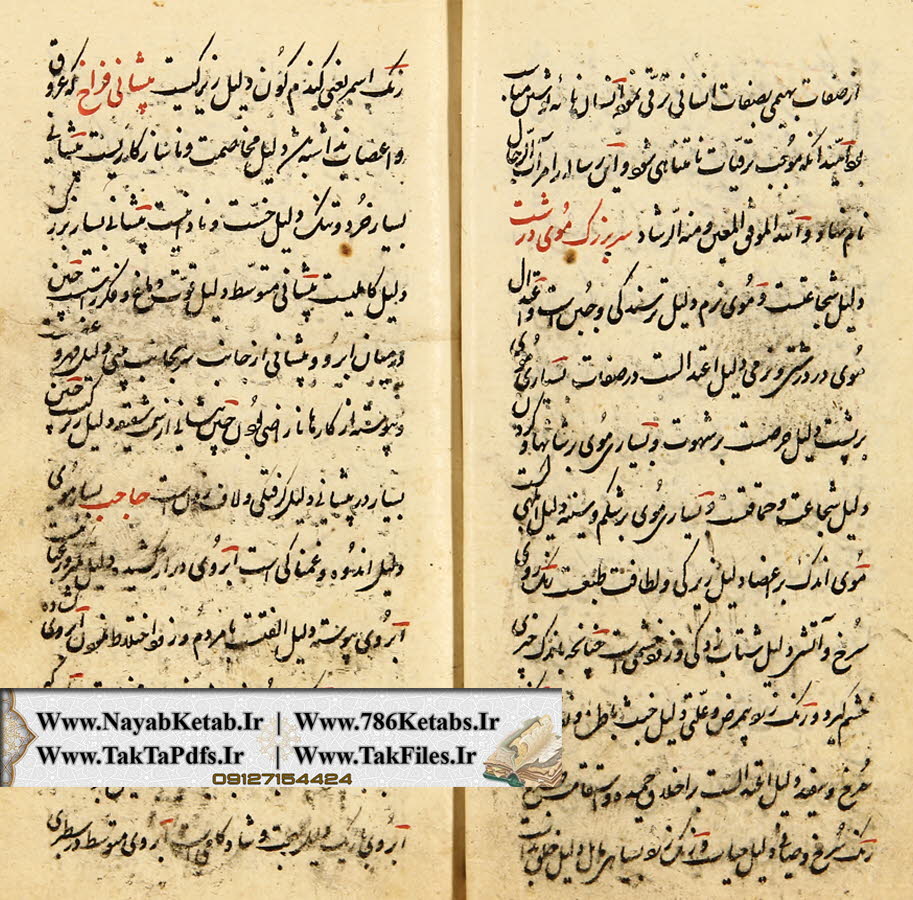 از صفات بهیمی بصفات انسانی ترقی نموده
بود امید آنکه موجب ترقیات نامتناهی شود و این رساله را مرآت الرجال
نام نهاد و الله الموفق المعین و منه الرشاد سر بزرک موی درشت
دلیل شجاعتست و موی نرم دلیل ترسندکی و جبن است و اعتدال
موی در درشتی و نرمی دلیل اعتدالست در صفات بسیاری موی
بر پشت دلیل حرصست بر شهوت و بسیاری موی بر شانها و کردن
دلیل شجاعت و حماقت و بسیاری موی بر شکم و سینه دلیل ابلهی است
موی اندک بر اعضا دلیل زیرکی و لطافت طبعت رنک روی
سرخ و آتشی دلیل شتاب زدکی و زود خشمی است چنانچه باندک چیزی
خشم کیرد و رنک زرد بیمرض و علتی دلیل خبث باطن
سرخ و سفید دلیل اعتدالست بر اخلاق حمیده و استقامت
رنک سرخ و صافی دلیل حیات و رنک زرد بسیاهی مایل دلیل خلق بد
رنک اسمر یعنی کندم کون دلیل زیرکیست پیشانی فراخ که عروق
و اعصاب نداشته باشد دلیل مخاصمت و ناسازکاریست پیشانی
بسیار خرد و تنک دلیل خست و نادانیست پیشانی بسیار بزرک
دلیل کاهلیست پیشانی متوسط دلیل قوت دماغ و فکر راست چین
در میان ابرو و پیشانی از جانب سر بجانب بینی دلیل
و پیوسته از کارها ناراضی بودن چین پیشانی از دلیل زیرکیست چین
بسیار در پیشانی دلیل کرفتکی و لاف زدن است حاجب بسیار موی
دلیل اندوه و غمناکی است ابروی دراز کشیده دلیل
ابروی پیوسته دلیل الفتست با مردم و زود اختلاط نمودن ابروی
ابروی باریک دلیل بهجت و شادکامی است ابروی متوسط در سطبری
Www.NayabKetab.Ir | Www.786Ketabs.Ir
Www.TakTaPdfs.Ir | Www.TakFiles.Ir
09127154424